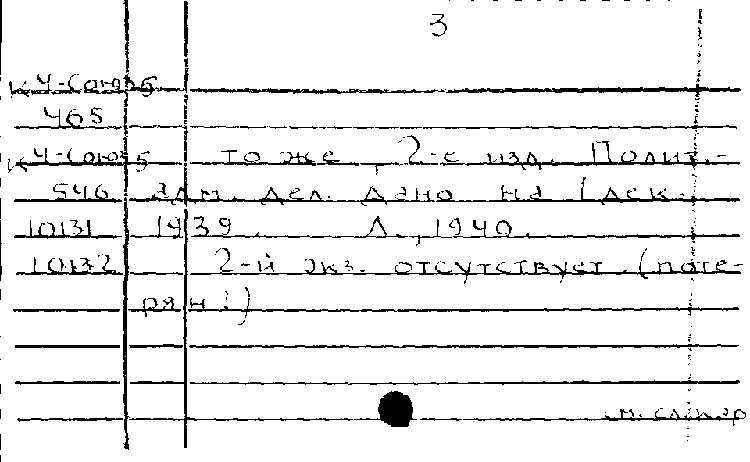 3
К Ч-Союз 5
465
К Ч-Союз 5 То же, 2-е изд. Полит.-
546 адм. дел. дано на 1 дек.
10131 1939. Л., 1940.
10132 2-й экз. отсутствует. (поте-
рян!)
см. сл. кар